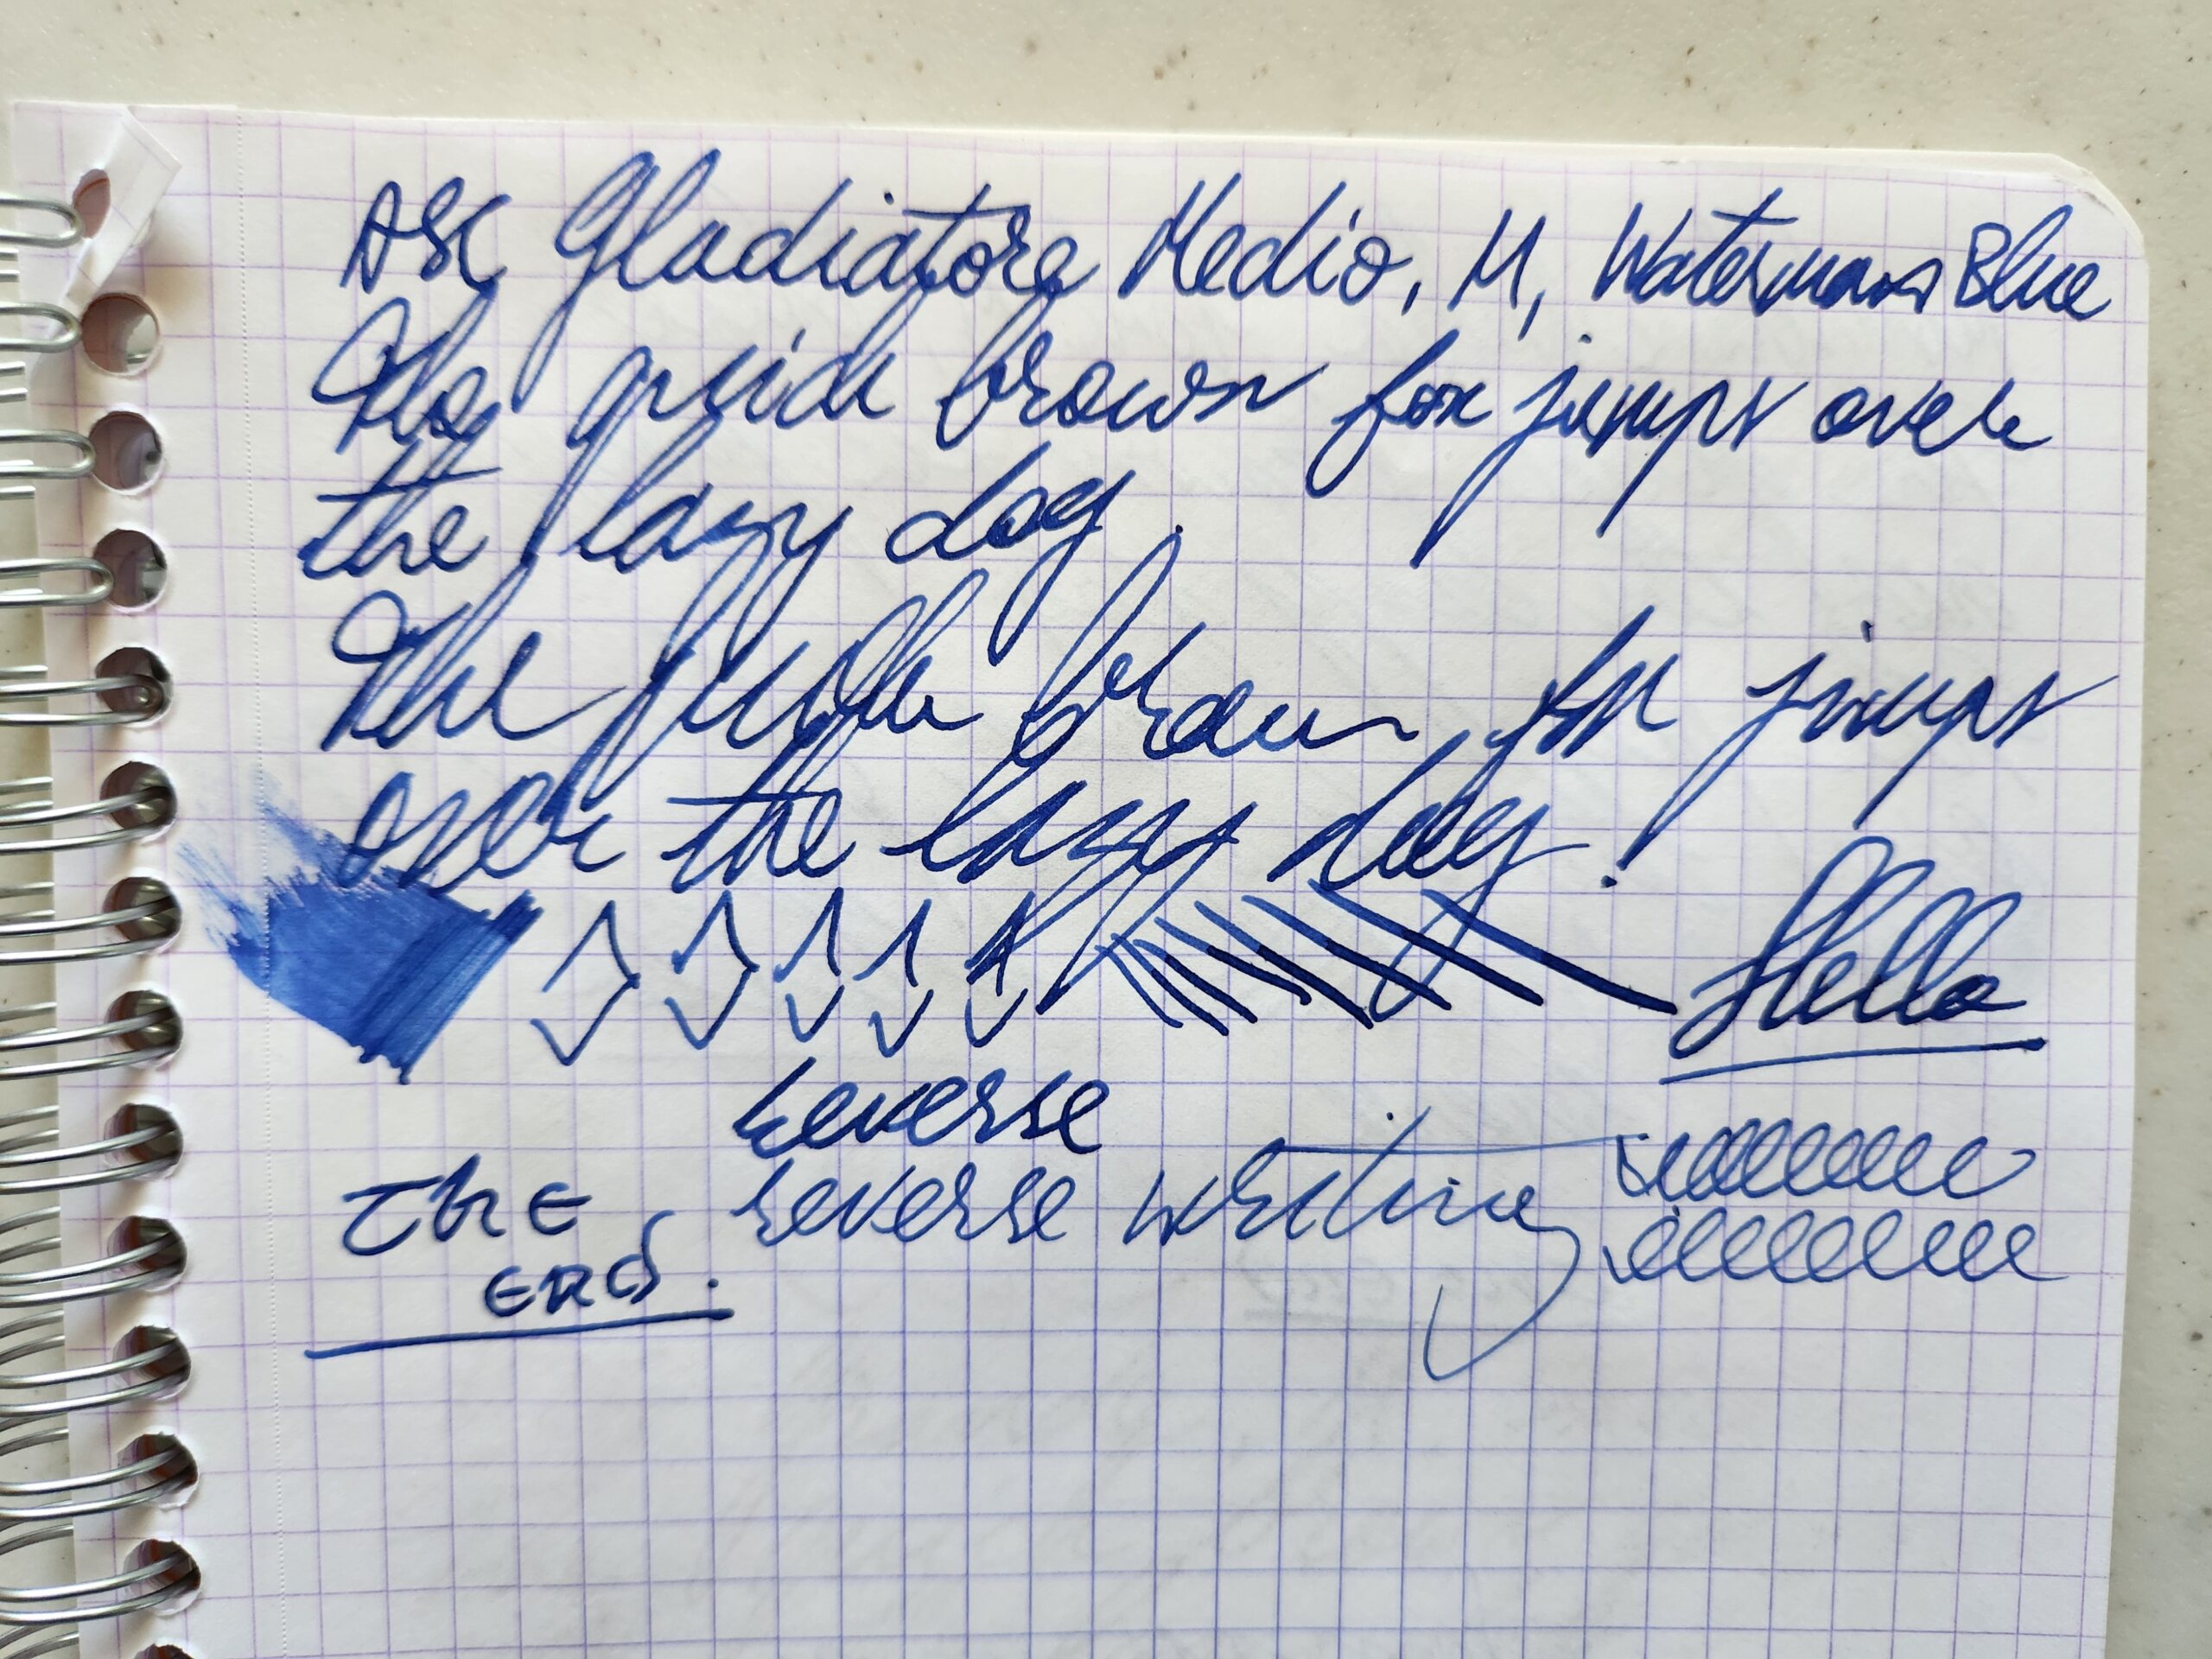 ASC Gladiatore Medio, M, Waterman Blue
The quick brown fox jumps over
the lazy dog.
The quick brown fox jumps
over the lazy dog!
Hello
reverse
reverse writing
The
End.